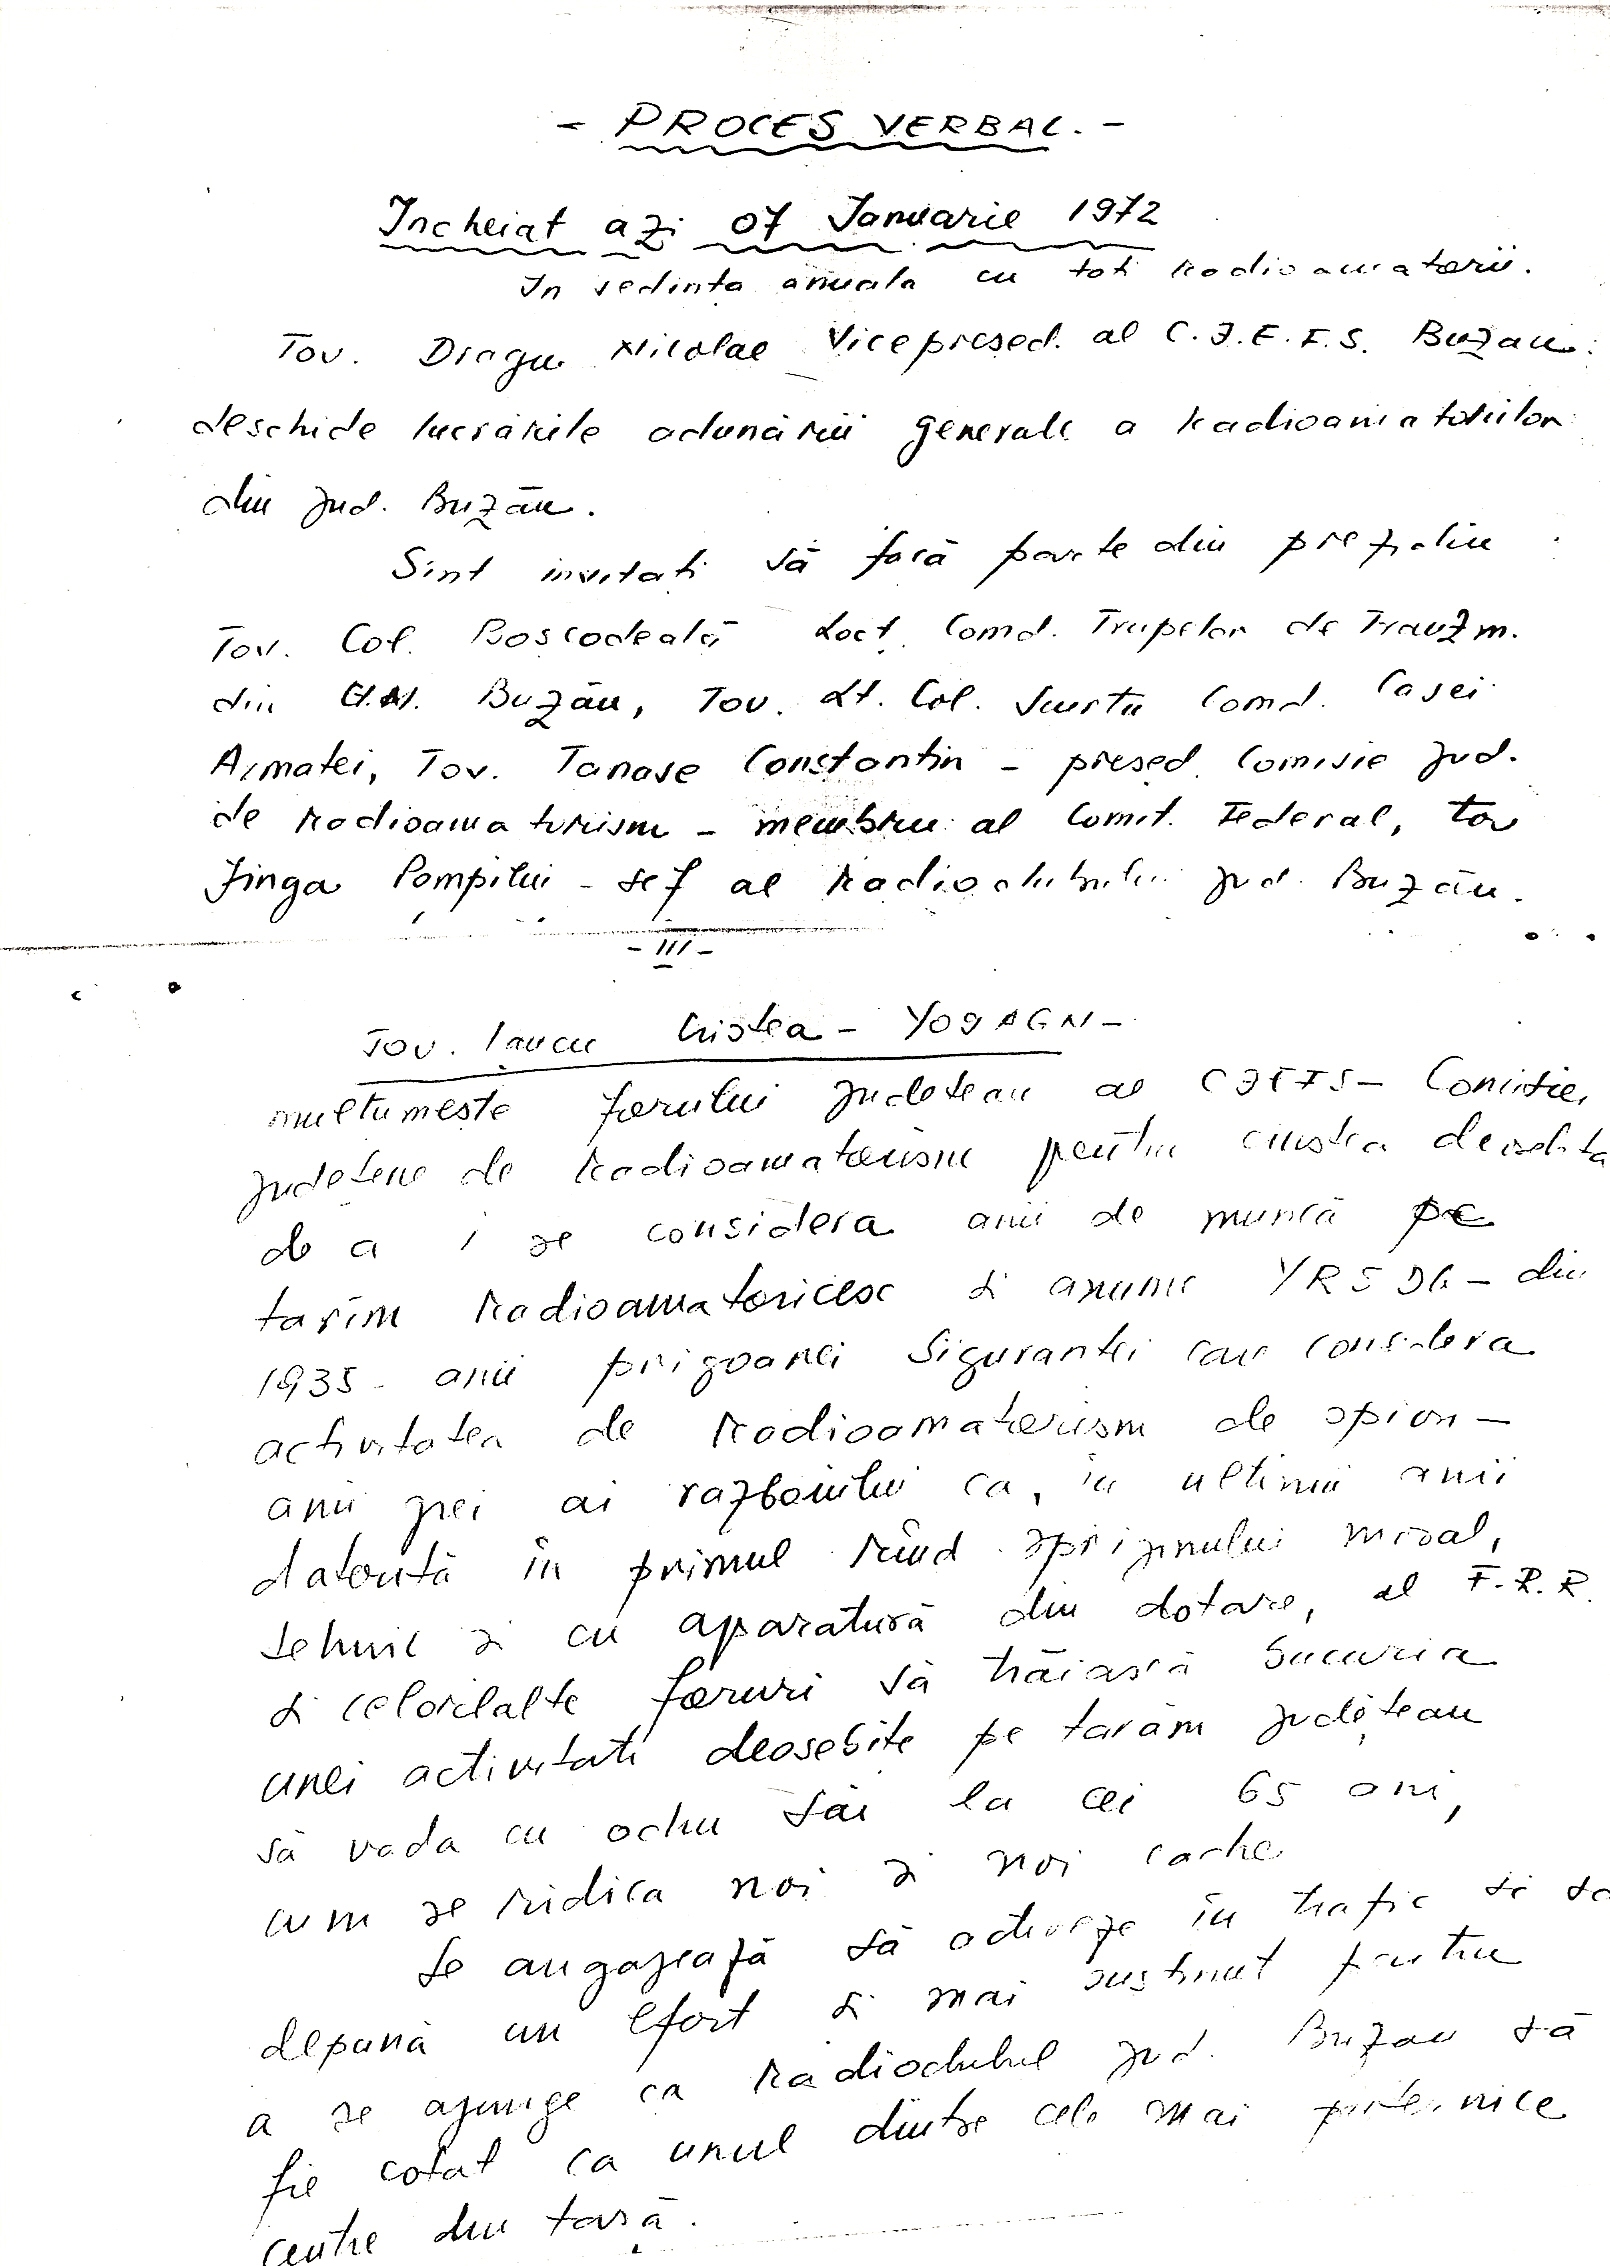 - PROCES VERBAL. -
Incheiat azi 07 Ianuarie 1972
In sedinta anuala cu toti radioamatorii.
Tov. Dragu Nicolae Vicepresed. al C.J.E.F.S. Buzau.
deschide lucrările adunării generale a radioamatorilor
din jud. Buzău.
Sint invitati să facă parte din prezidiu
Tov. Col. Boscodeală Loct. Comd. Trupelor de Tranzm.
din Buzău, Tov. Lt. Col. Comd. Casei
Armatei, Tov. Tanase Constantin - presed. Comisie jud.
de radioamatorism - membru al Comit. Federal, tov
Jinga Pompiliu - sef al Radioclubului jud. Buzău.
- III -
Tov. Iancu Cristea - YO9AGN -
multumeste forului judetean al CJEFS - Comisiei
judetene de radioamatorism pentru cinstea deosebita
de a i se considera anii de muncă pe
tarîm radioamatoricesc si anume YR5DG - din
1935 - anii prigoanei Sigurantei care considera
activitatea de radioamatorism de spion -
anii grei ai razboiului ca, in ultimii anii
datorită în primul rând sprijinului moral,
tehnic si cu aparatură din dotare, al F.R.R.
si celorlalte foruri să trăiască bucuria
unei activitati deosebite pe tarâm judeţean
să vada cu ochii săi la cei 65 ani,
cum se ridica noi si noi cadre
Se angajează să activeze în trafic si sa
depună un efort si mai sustinut pentru
a se ajunge ca Radioclubul jud. Buzau să
fie cotat ca unul dintre cele mai puternice
centre din tară.